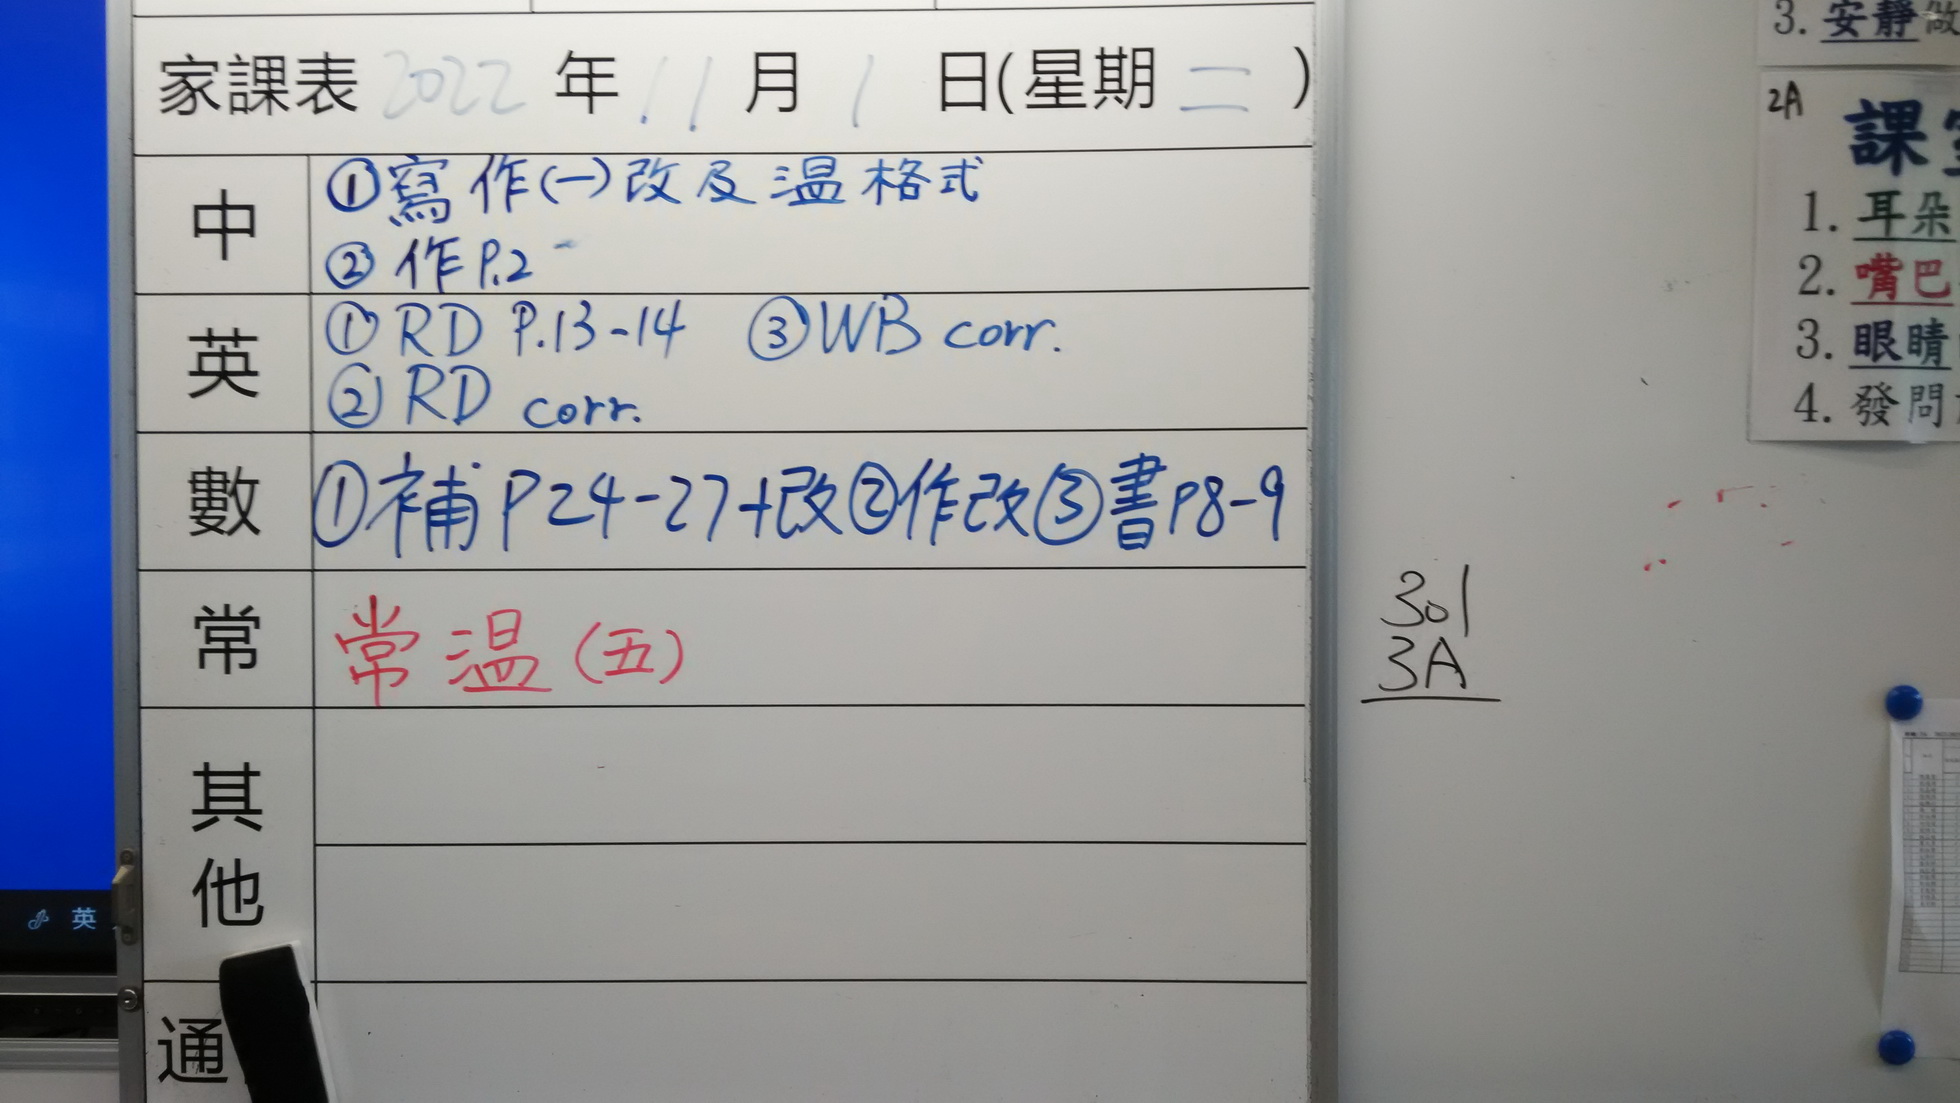 家課表 2022 年 11 月 1 日(星期 二 )
中
①寫作(一)改及温格式
②作P.2
英
①RD P.13-14 ③WB corr.
②RD corr.
數
①補P24-27+改②作改③書P8-9
常
常温(五)
其他
通
英
301
3A
3. 安靜做
2A
課室
1. 耳朵
2. 嘴巴
3. 眼睛
4. 發問